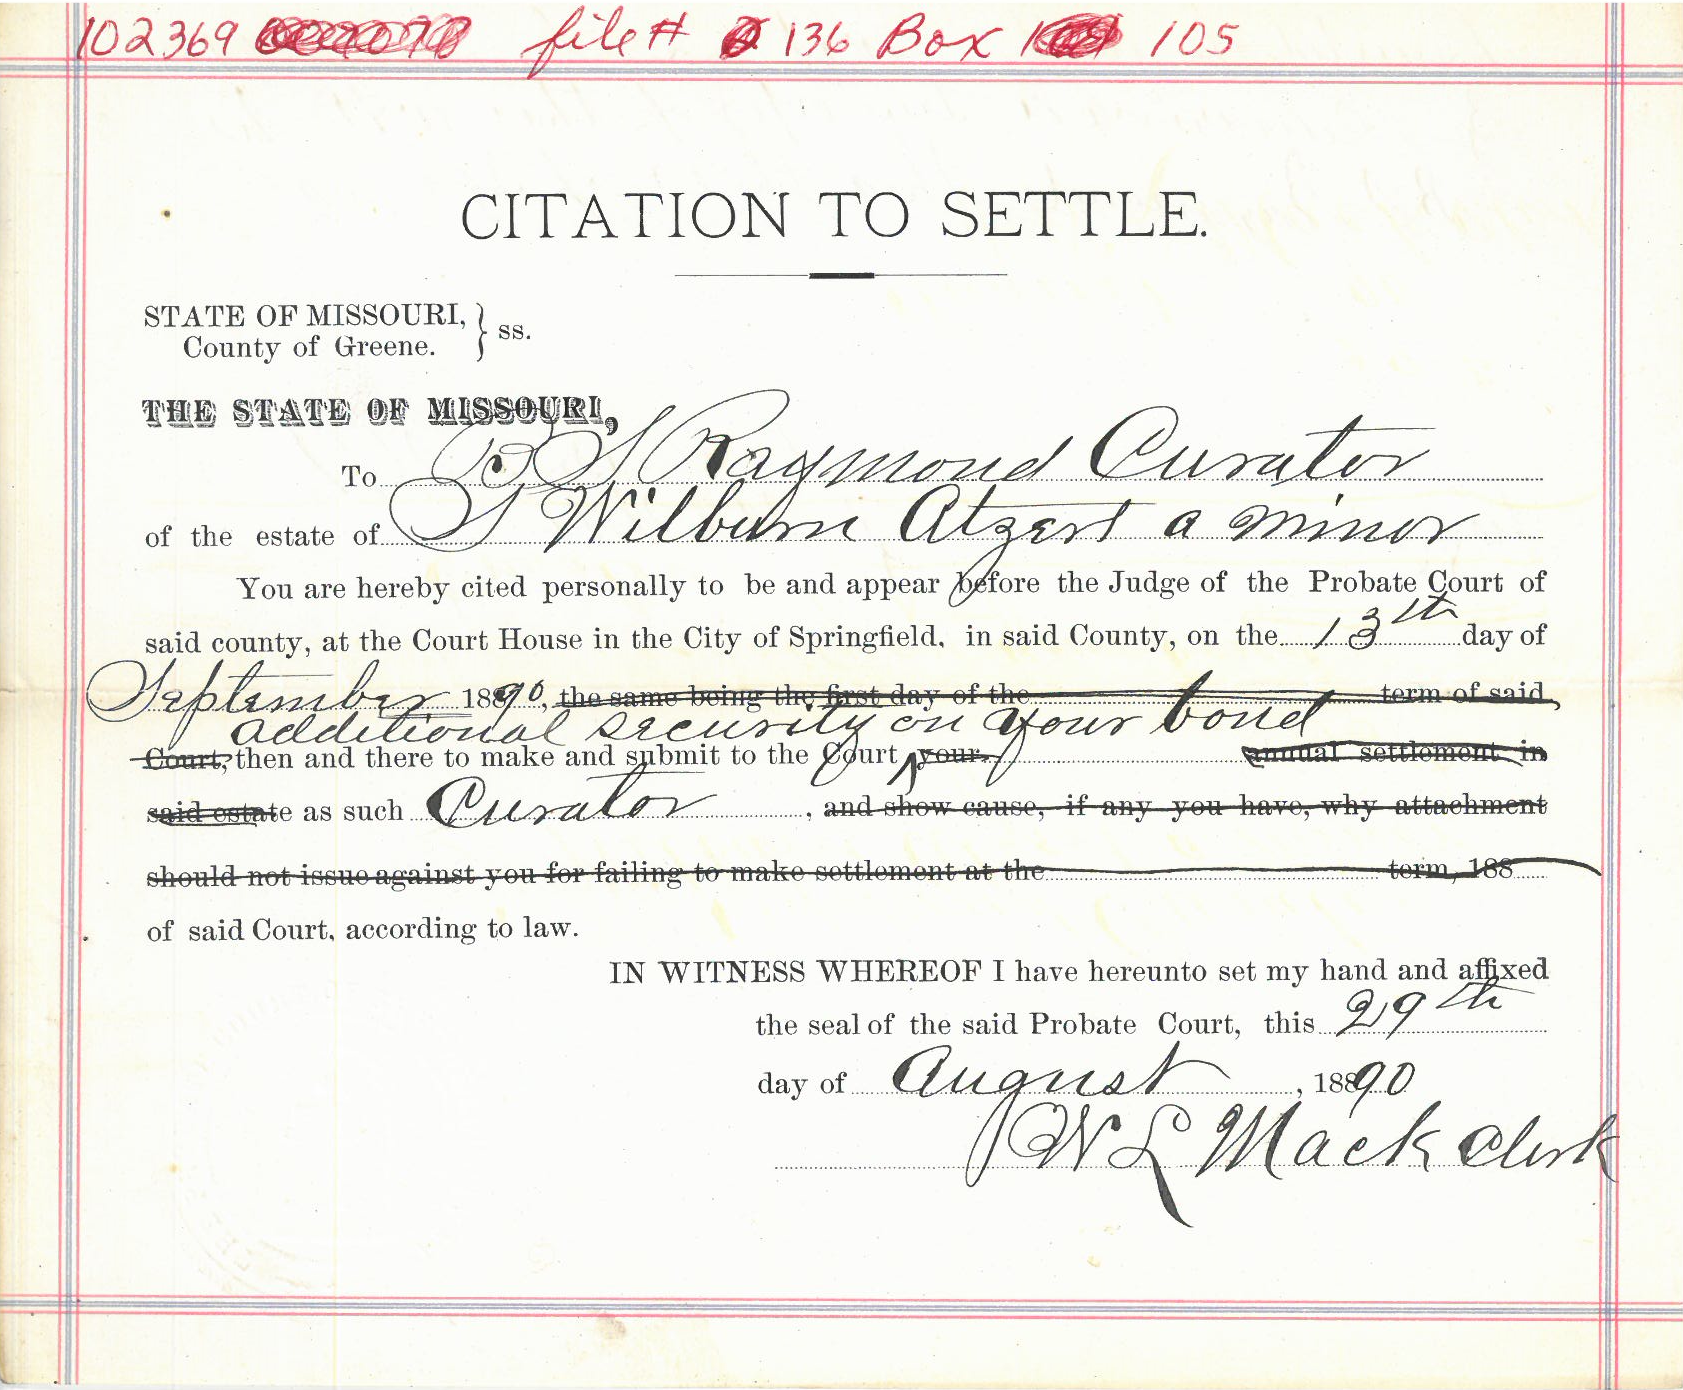 102369 file # 136 Box 105
CITATION TO SETTLE.
STATE OF MISSOURI, } ss.
County of Greene.
THE STATE OF MISSOURI,
To B S Raymond Curator
of the estate of S Wilburn Atzert a minor
You are hereby cited personally to be and appear before the Judge of the Probate Court of
said county, at the Court House in the City of Springfield, in said County, on the 13th day of
September 1890, the same being the first day of the term of said
additional security on your bond
Court, then and there to make and submit to the Court your annual settlement in
said estate as such Curator, and show cause, if any you have, why attachment
should not issue against you for failing to make settlement at the term, 188
of said Court, according to law.
IN WITNESS WHEREOF I have hereunto set my hand and affixed
the seal of the said Probate Court, this 29th
day of August, 1890
W L Mack Clerk